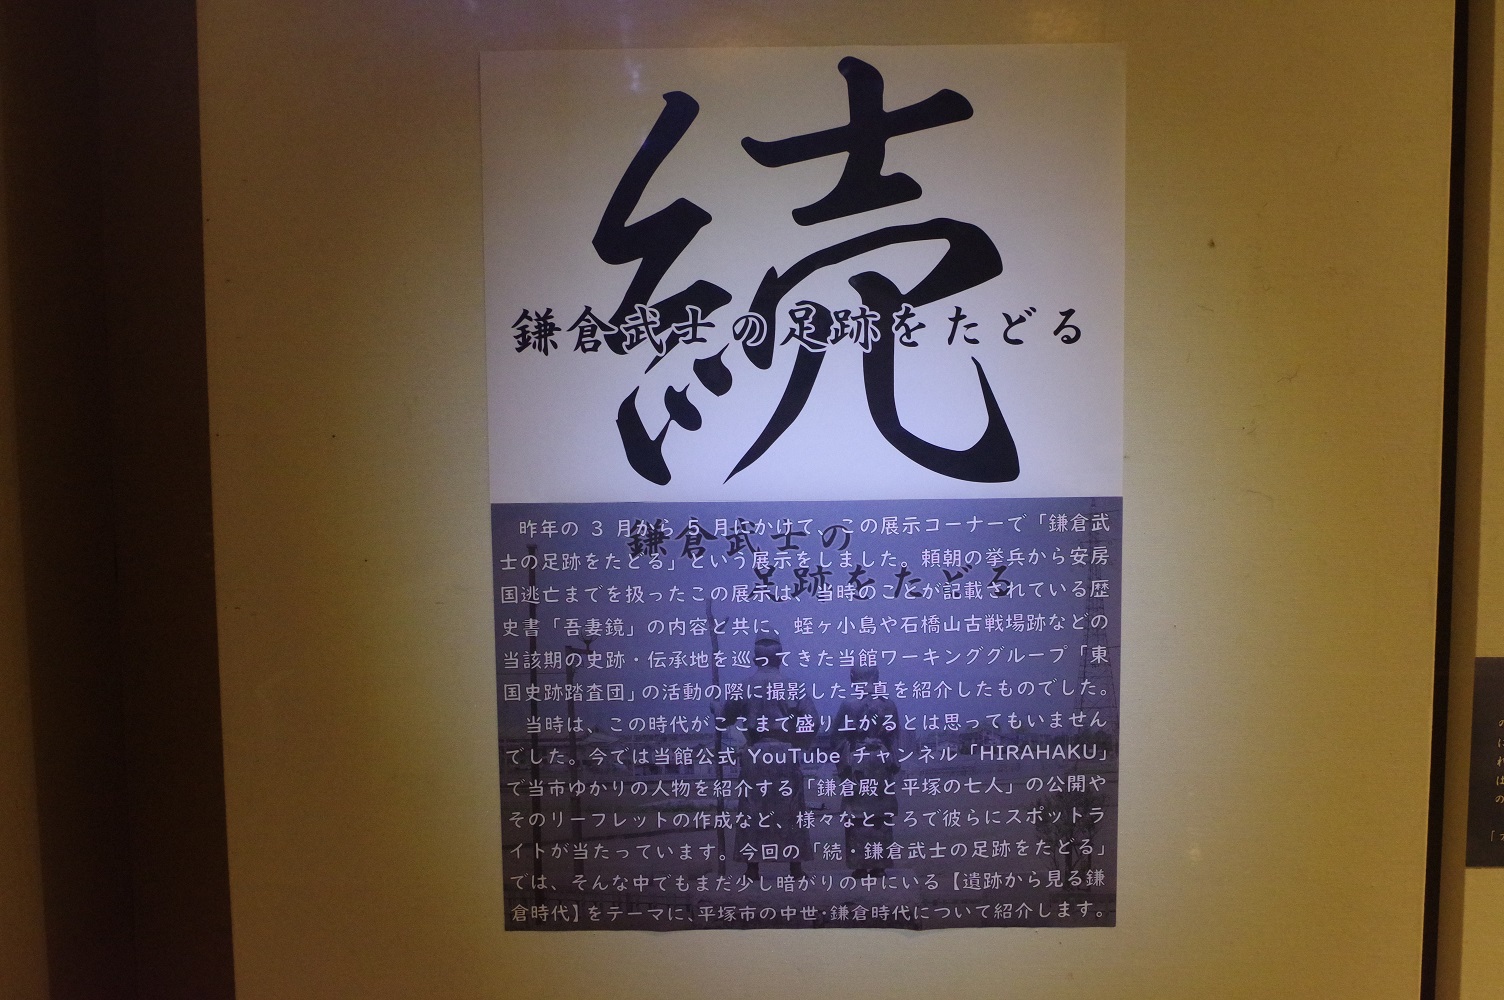 続
鎌倉武士の足跡をたどる
鎌倉武士の
足跡をたどる
昨年の 3 月から 5 月にかけて、この展示コーナーで「鎌倉武
士の足跡をたどる」という展示をしました。頼朝の挙兵から安房
国逃亡までを扱ったこの展示は、当時のことが記載されている歴
史書「吾妻鏡」の内容と共に、蛭ヶ小島や石橋山古戦場跡などの
当該期の史跡・伝承地を巡ってきた当館ワーキンググループ「東
国史跡踏査団」の活動の際に撮影した写真を紹介したものでした。
当時は、この時代がここまで盛り上がるとは思ってもいません
でした。今では当館公式 YouTube チャンネル「HIRAHAKU」
で当市ゆかりの人物を紹介する「鎌倉殿と平塚の七人」の公開や
そのリーフレットの作成など、様々なところで彼らにスポットラ
イトが当たっています。今回の「続・鎌倉武士の足跡をたどる」
では、そんな中でもまだ少し暗がりの中にいる【遺跡から見る鎌
倉時代】をテーマに、平塚市の中世・鎌倉時代について紹介します。